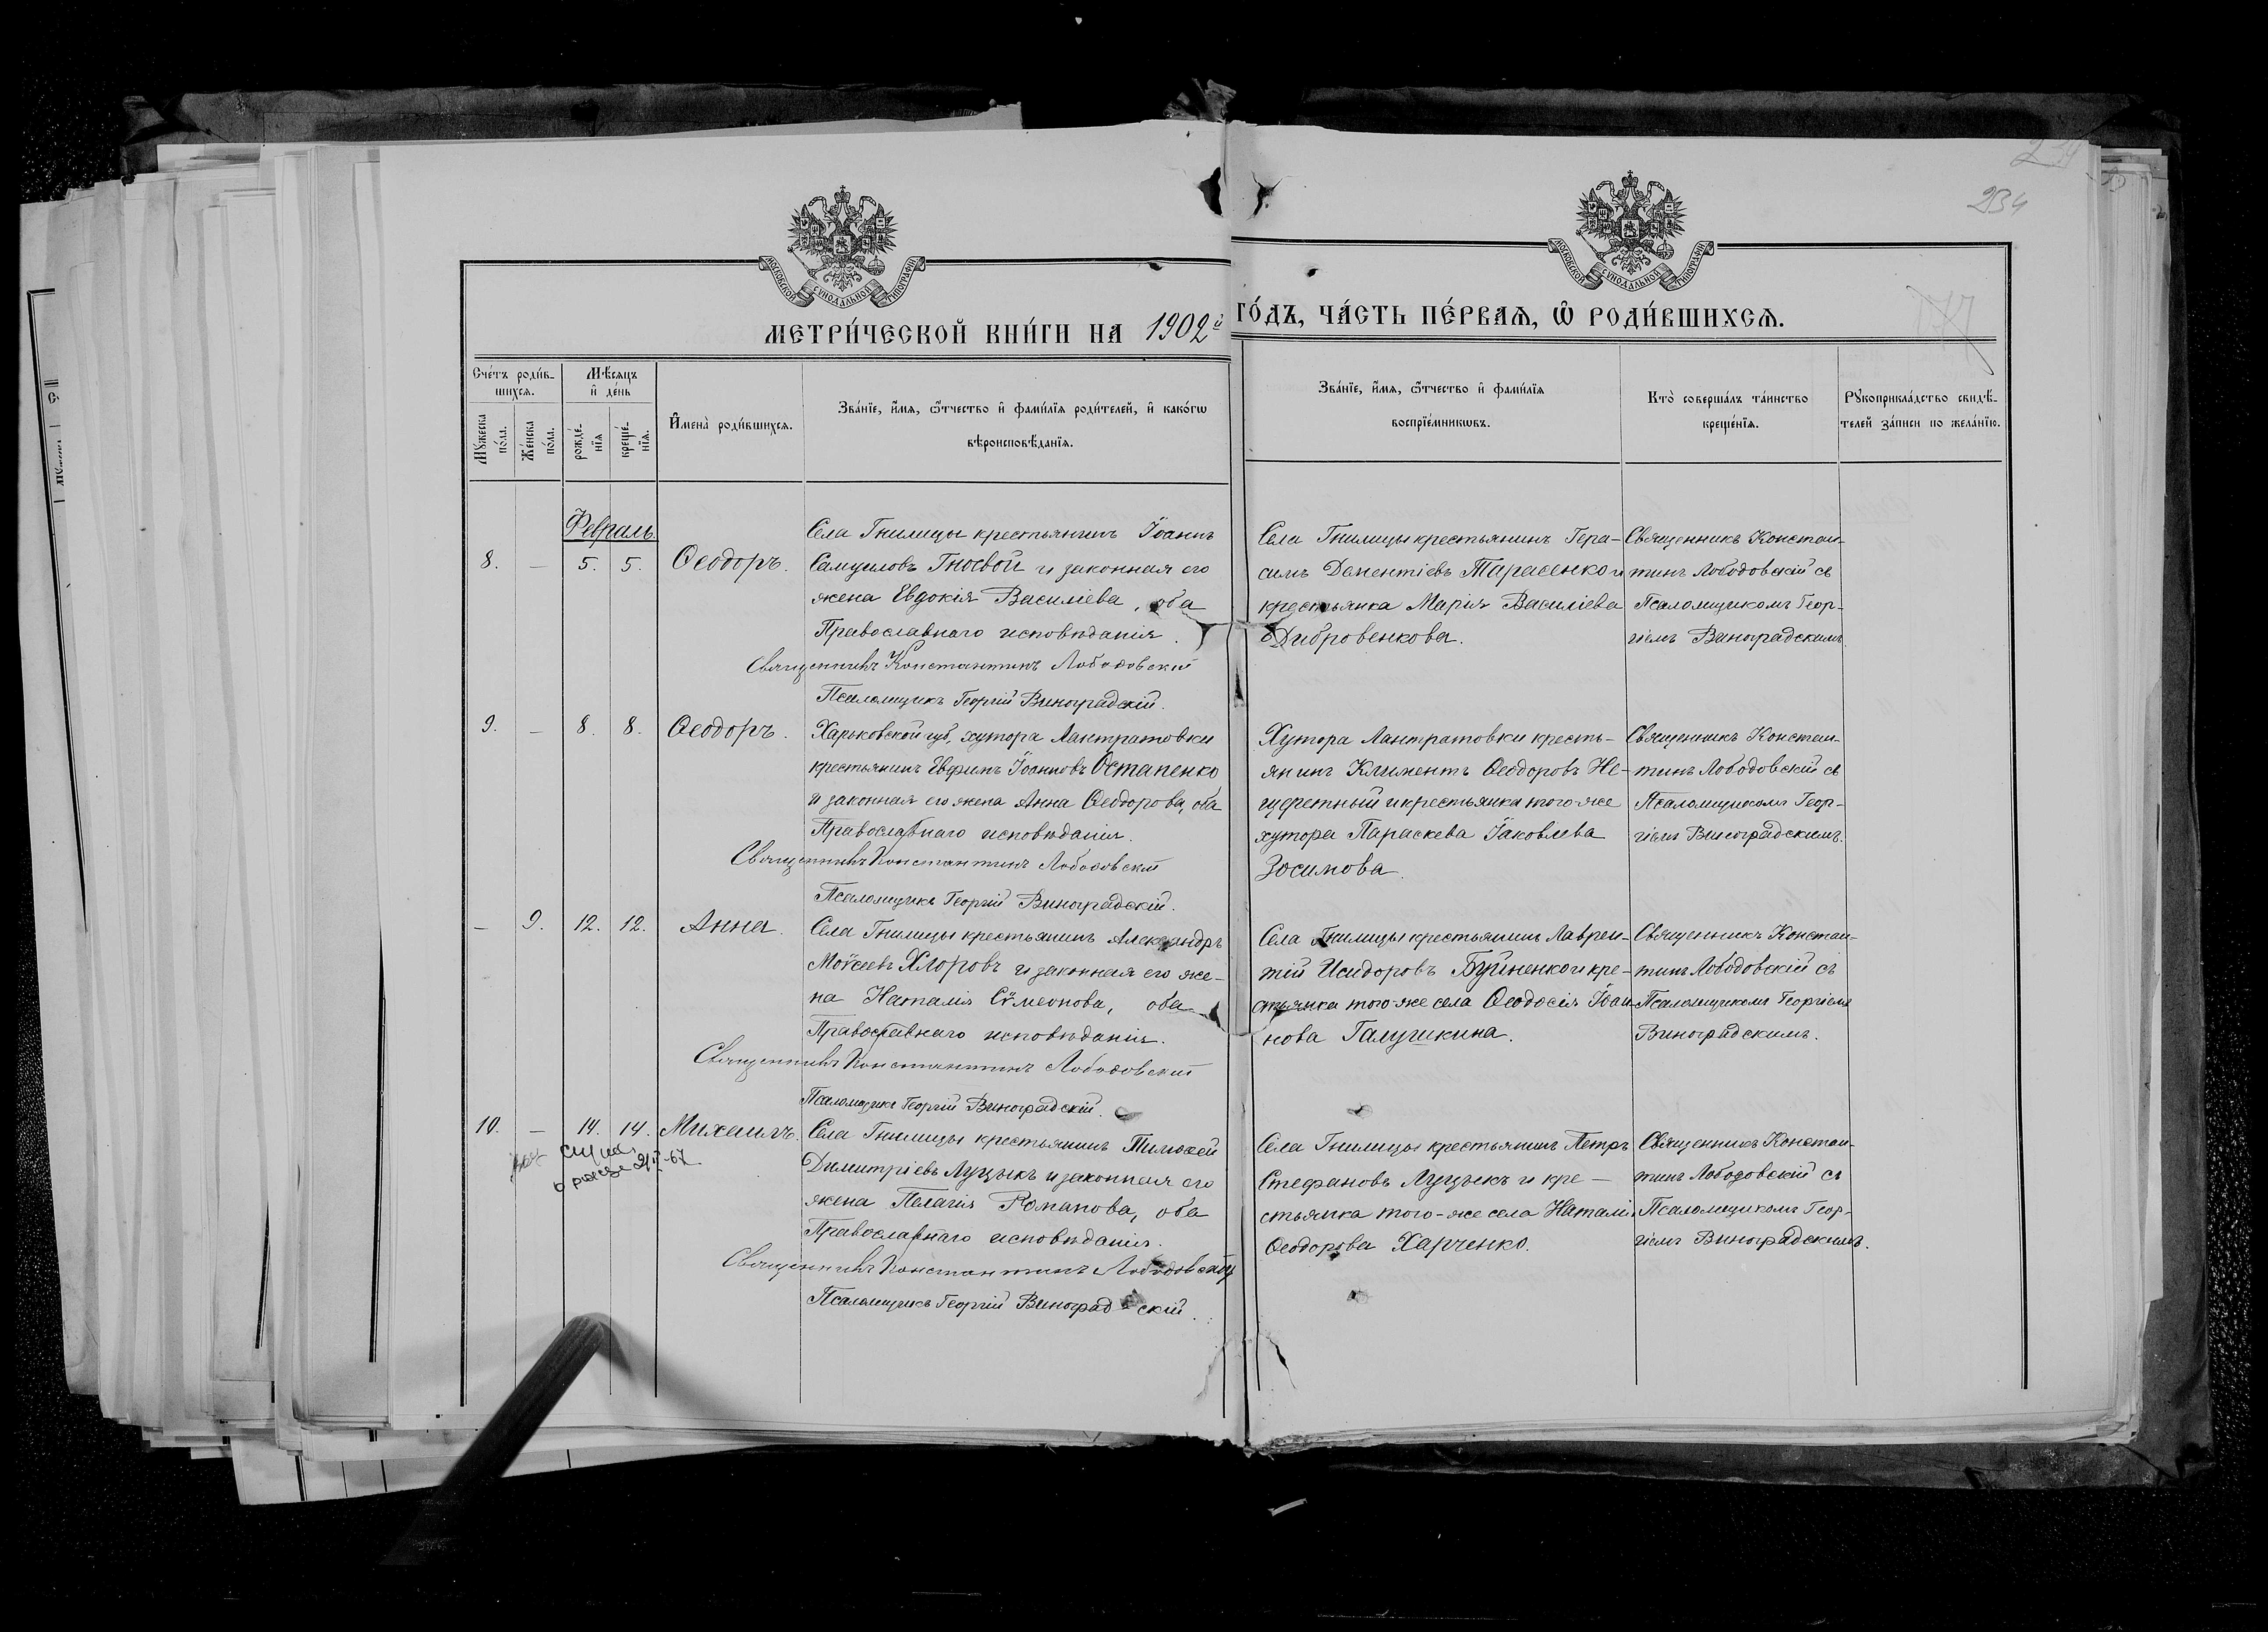 234
МОСКОВСКОЙ СѴНОДАЛЬНОЙ ТИПОГРАФІИ
МОСКОВСКОЙ СѴНОДАЛЬНОЙ ТИПОГРАФІИ
МЕТРИ́ЧЕСКОЙ КНИ́ГИ НА 1902й
ГО́ДЪ, ЧА́СТЬ ПЕ́РВАѦ, Ѡ҆ РОДИ́ВШИХСѦ.
Сче́тъ роди́в-
шихсѧ.
Мꙋ́жеска по́ла.
Же́нска по́ла.
Мѣ́сѧцъ
и҆ де́нь
рожде́-
нїѧ
креще́-
нїѧ.
И҆мена̀ роди́вшихсѧ.
Зва́нїе, и҆́мѧ, ѻ҆́тчество и҆ фами́лїѧ роди́телей, и҆ како́гѡ
вѣроисповѣ́данїѧ.
Зва́нїе, и҆́мѧ, ѻ҆́тчество и҆ фами́лїѧ
воспрїе́мникѡвъ.
Кто̀ соверша́лъ та́инство
креще́нїѧ.
Рꙋкоприкла́дство свидѣ́-
телей за́писи по жела́нїю.
Февраль.
8. — 5. 5. Ѳеодоръ.
Села Гнилицы крестьянинъ Іоаннъ
Самуиловъ Гноевой и законная его
жена Евдокія Василіева, оба
Православнаго исповѣданія.
Священникъ Константинъ Лободовскій
Псаломщикъ Георгій Виноградскій.
Села Гнилицы крестьянинъ Гера-
симъ Дементіевъ Тарасенко и
крестьянка Марія Василіева
Дибровенкова.
Священникъ Констан-
тинъ Лободовскій съ
Псаломщикомъ Геор-
гіемъ Виноградскимъ.
9. — 8. 8. Ѳеодоръ.
Харьковской губ, хутора Лантратовки
крестьянинъ Евфимъ Іоанновъ Остапенко
и законная его жена Анна Ѳеодорова, оба
Православнаго исповѣданія.
Священникъ Константинъ Лободовскій
Псаломщикъ Георгій Виноградскій.
Хутора Лантратовки кресть-
янинъ Климентъ Ѳеодоровъ Не-
щеретный и крестьянка того-же
хутора Параскева Іаковлева
Зосимова.
Священникъ Констан-
тинъ Лободовскій съ
Псаломщикомъ Геор-
гіемъ Виноградскимъ.
— 9. 12. 12. Анна.
Села Гнилицы крестьянинъ Александръ
Моѵсеевъ Хлоровъ и законная его же-
на Наталія Сѵмеонова, оба
Православнаго исповѣданія.
Священникъ Константинъ Лободовскій
Псаломщикъ Георгій Виноградскій.
Села Гнилицы крестьянинъ Лаврен-
тій Исидоровъ Буйненко и кре-
стьянка того-же села Ѳеодосія Іоан-
нова Галушкина.
Священникъ Констан-
тинъ Лободовскій съ
Псаломщикомъ Георгіемъ
Виноградскимъ.
10. — 14. 14. Михаилъ.
Села Гнилицы крестьянинъ Тимоѳей
Димитріевъ Луцыкъ и законная его
жена Пелагія Романова, оба
Православнаго исповѣданія.
Священникъ Константинъ Лободовскій
Псаломщикъ Георгій Виноград-скій.
Села Гнилицы крестьянинъ Петръ
Стефановъ Луцыкъ и кре-
стьянка того-же села Наталія
Ѳеодорова Харченко.
Священникъ Констан-
тинъ Лободовскій съ
Псаломщикомъ Геор-
гіемъ Виноградскимъ.